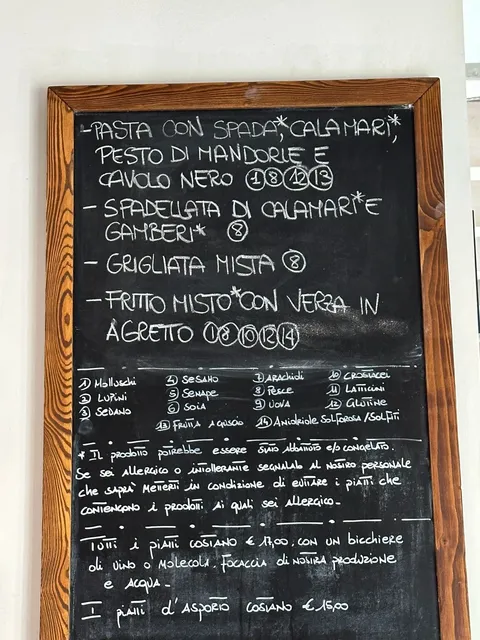 - PASTA CON SPADA*, CALAMARI*,
PESTO DI MANDORLE E
CAVOLO NERO ① ⑧ ⑫ ⑬
- SPADELLATA DI CALAMARI* E
GAMBERI* ⑧
- GRIGLIATA MISTA ⑧
- FRITTO MISTO* CON VERZA IN
AGRETTO ① ⑧ ⑩ ⑫ ⑭
1) Molluschi 4) SESAMO 7) ARACHIDI 10) CROSTACEI
2) LUPINI 5) SENAPE 8) PESCE 11) LATTICINI
3) SEDANO 6) SOIA 9) UOVA 12) GLUTINE
13) FRUTTA A GUSCIO 14) ANIDRIDE SOLFOROSA/SOLFITI
* IL prodotto potrebbe essere stato abbattuto e/o congelato.
Se sei allergico o intollerante segnalalo al nostro personale
che saprà metterti in condizione di evitare i piatti che
contengono i prodotti ai quali sei allergico -
Tutti i piatti costano € 17,00. con un bicchiere
di vino o Molecola. Focaccia di nostra produzione
e acqua -
I piatti d'asporto costano € 15,00